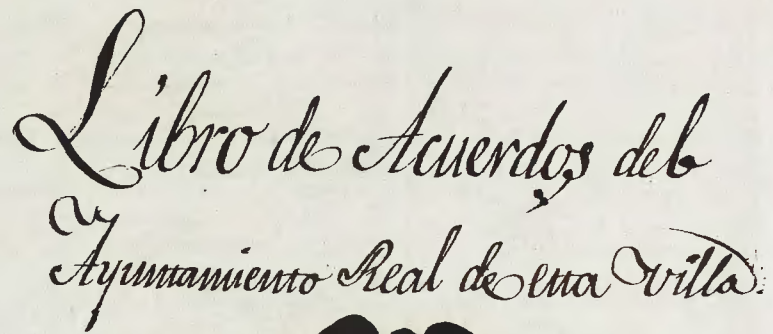 Libro de Acuerdos del
Ayuntamiento Real de esta Villa.